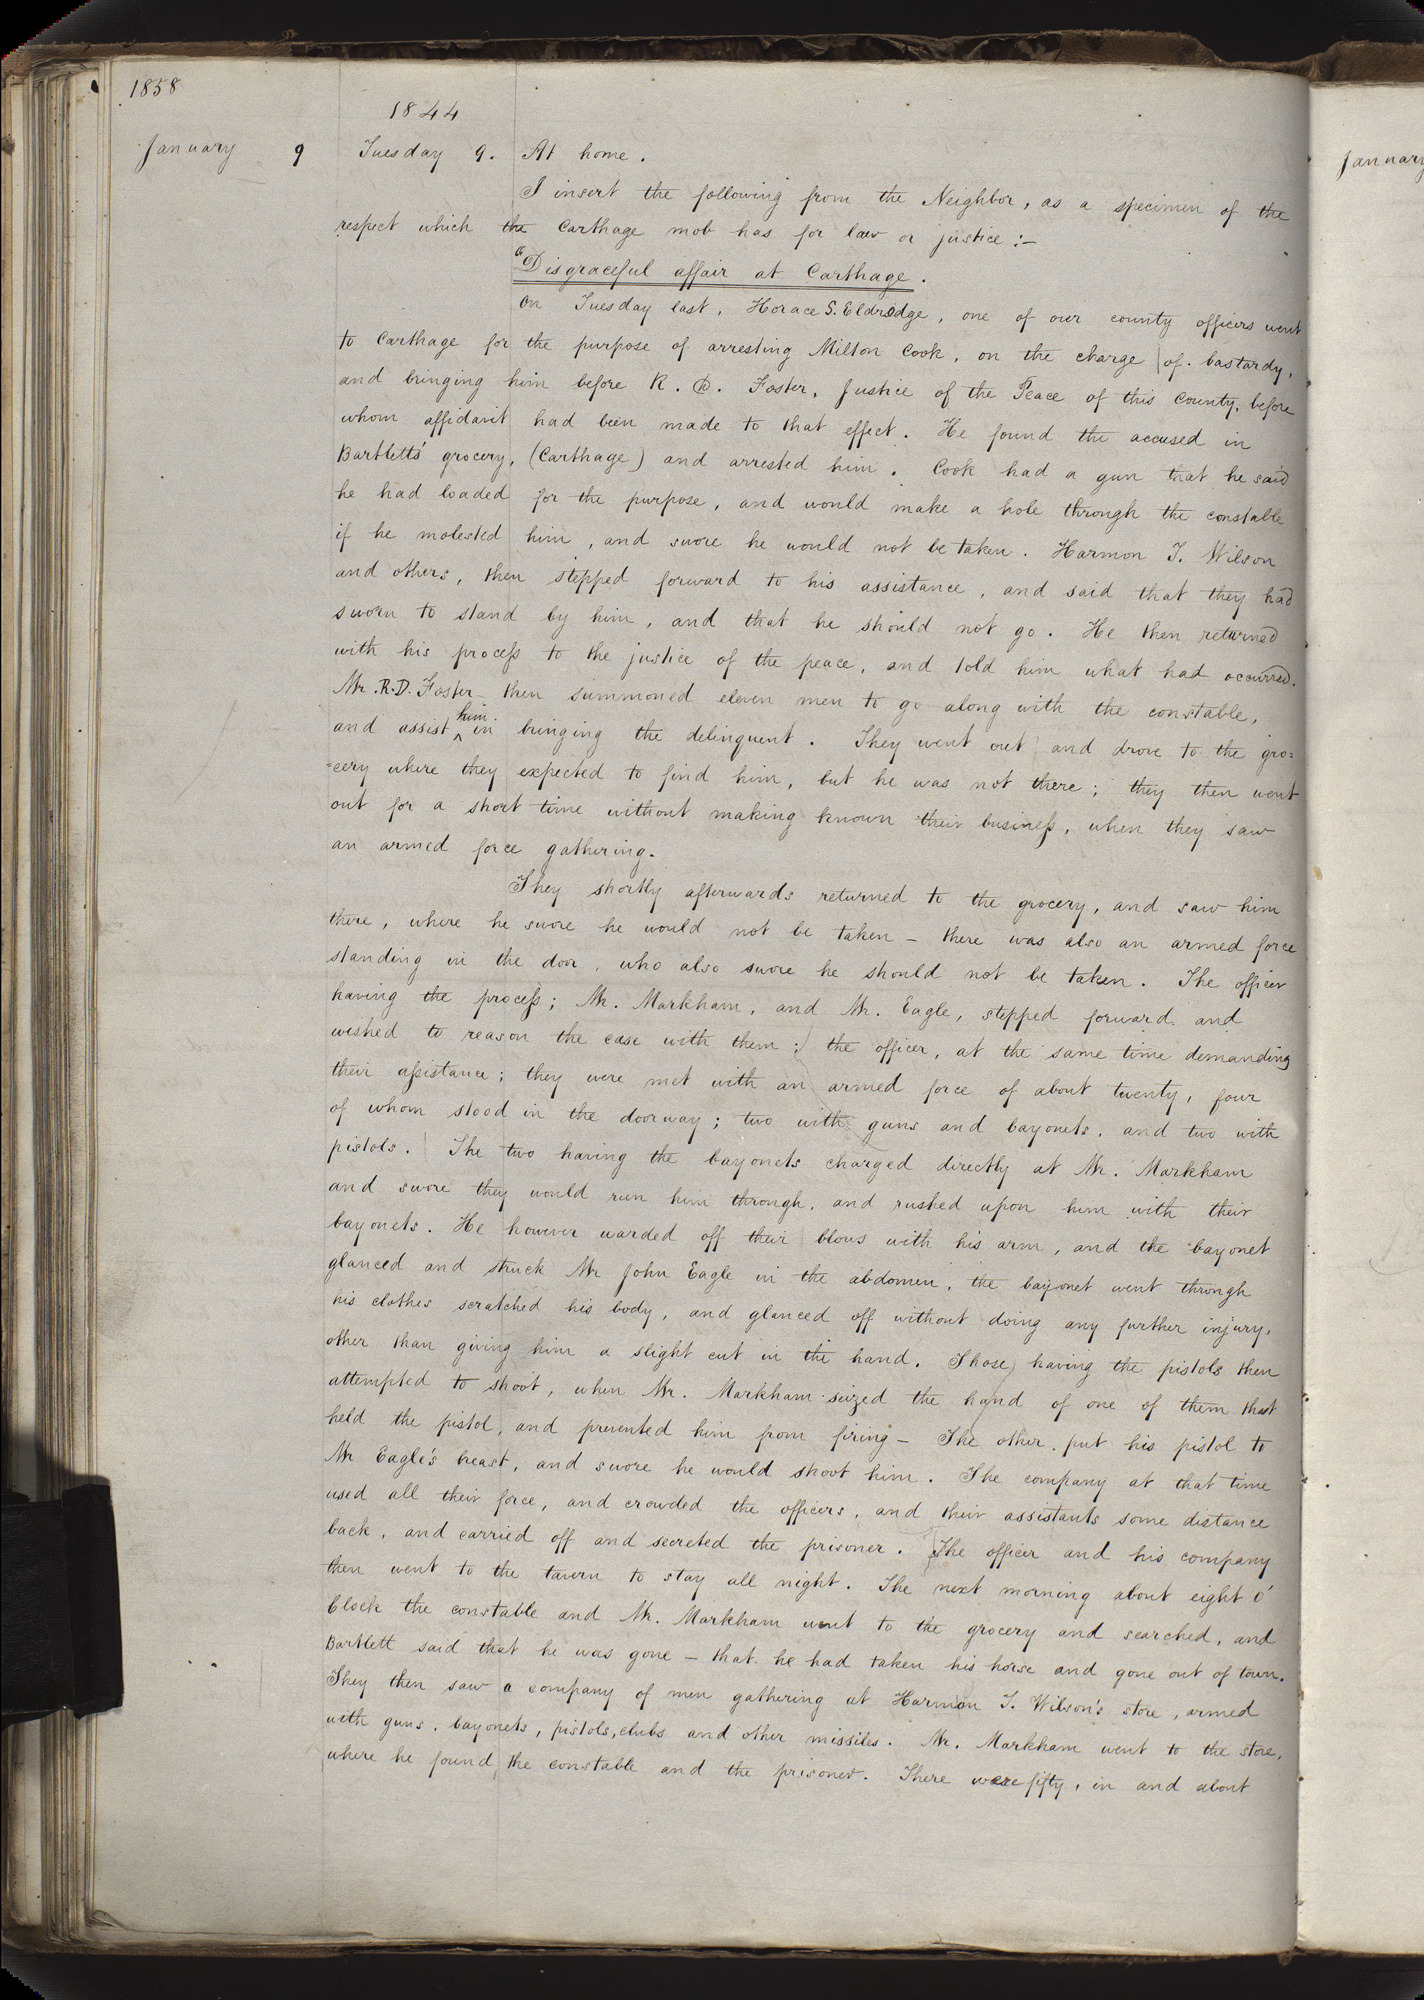 1858
1844
January 9 Tuesday 9. At home.
I insert the following from the Neighbor, as a specimen of the
respect which the Carthage mob has for law or justice:-
"Disgraceful affair at Carthage.
On Tuesday last, Horace S. Eldredge, one of our county officers went
to Carthage for the purpose of arresting Milton Cook, on the charge of bastardy,
and bringing him before R. D. Foster, Justice of the Peace of this County, before
whom affidavit had been made to that effect. He found the accused in
Bartletts' grocery, (Carthage) and arrested him. Cook had a gun that he said
he had loaded for the purpose, and would make a hole through the constable
if he molested him, and swore he would not be taken. Harmon T. Wilson
and others, then stepped forward to his assistance, and said that they had
sworn to stand by him, and that he should not go. He then returned
with his process to the justice of the peace, and told him what had occurred.
Mr. R.D. Foster then summoned eleven men to go along with the constable,
and assist ^him in bringing the delinquent. They went out and drove to the gro=
=cery where they expected to find him, but he was not there; they then went
out for a short time without making known their business, when they saw
an armed force gathering.
They shortly afterwards returned to the grocery, and saw him
there, where he swore he would not be taken - there was also an armed force
standing in the door, who also swore he should not be taken. The officer
having the process; Mr. Markham, and Mr. Eagle, stepped forward and
wished to reason the case with them; the officer, at the same time demanding
their assistance; they were met with an armed force of about twenty, four
of whom stood in the doorway; two with guns and bayonets, and two with
pistols. The two having the bayonets charged directly at Mr. Markham
and swore they would run him through, and rushed upon him with their
bayonets. He however warded off their blows with his arm, and the bayonet
glanced and struck Mr John Eagle in the abdomen, the bayonet went through
his clothes scratched his body, and glanced off without doing any further injury,
other than giving him a slight cut in the hand. Those having the pistols then
attempted to shoot, when Mr. Markham seized the hand of one of them that
held the pistol, and prevented him from firing - The other put his pistol to
Mr Eagle's breast, and swore he would shoot him. The company at that time
used all their force, and crowded the officers, and their assistants some distance
back, and carried off and secreted the prisoner. The officer and his company
then went to the tavern to stay all night. The next morning about eight o'
Clock the constable and Mr. Markham went to the grocery and searched, and
Bartlett said that he was gone - that he had taken his horse and gone out of town.
They then saw a company of men gathering at Harmon T. Wilson's store, armed
with guns, bayonets, pistols, clubs and other missiles. Mr. Markham went to the store,
where he found the constable and the prisoner. There were fifty, in and about
January